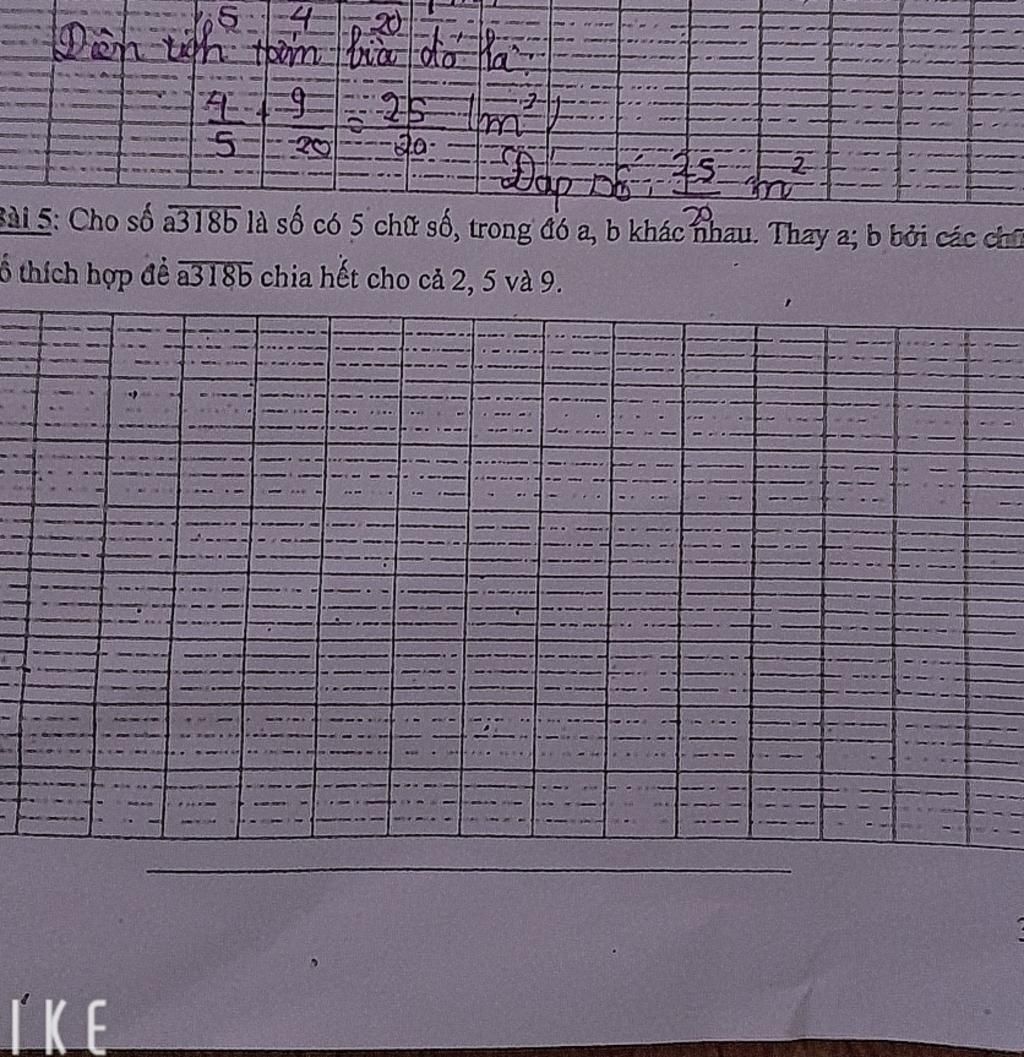 5 4 20
Diện tích tấm bìa đó là:
4 9 = 25 (m²)
5 20 20
Đáp số: 25 m²
20
Bài 5: Cho số a318b là số có 5 chữ số, trong đó a, b khác nhau. Thay a; b bởi các chữ
số thích hợp để a318b chia hết cho cả 2, 5 và 9.
IKE